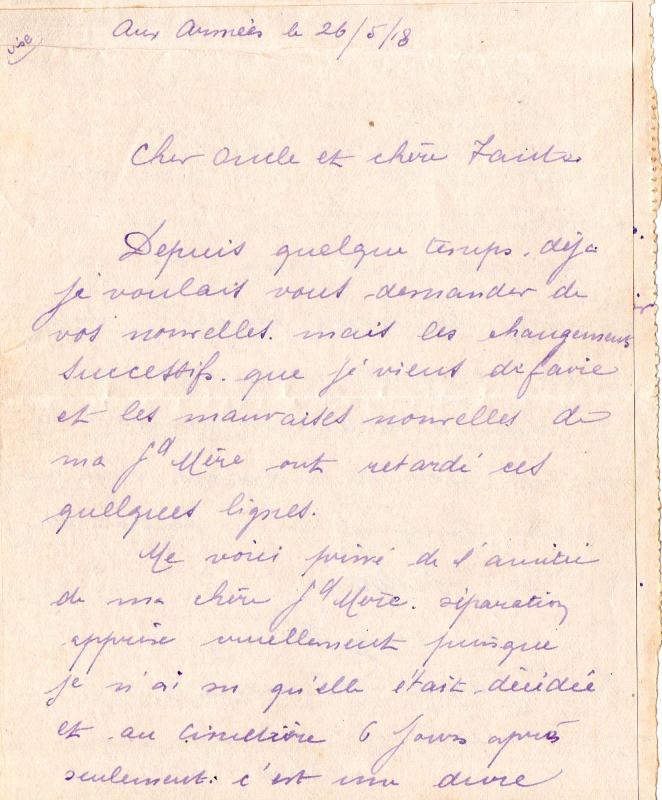 visé
Aux Armées le 26/5/18
Cher Oncle et chère Tante
Depuis quelque temps. déjà
je voulait vous demander de
vos nouvelles. mais les changements
successifs. que je vient de faire
et les mauvaises nouvelles de
ma Gd Mère ont retardé ces
quelques lignes.
Me voici privé de l'amitié
de ma chère Gd Mère. séparation
apprise cruellement puisque
je n'ai su qu'elle était décédée
et au cimetière 6 jours après
seulement. c'est une dure